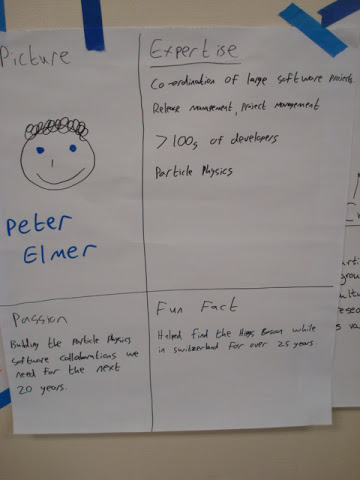 Picture
Peter
Elmer
Expertise
Co-ordination of large software projects
Release management, Project management
>100s of developers
Particle Physics
Passion
Building the Particle Physics
software collaborations we
need for the next
20 years.
Fun Fact
Helped find the Higgs Boson while
in switzerland for over 25 years.